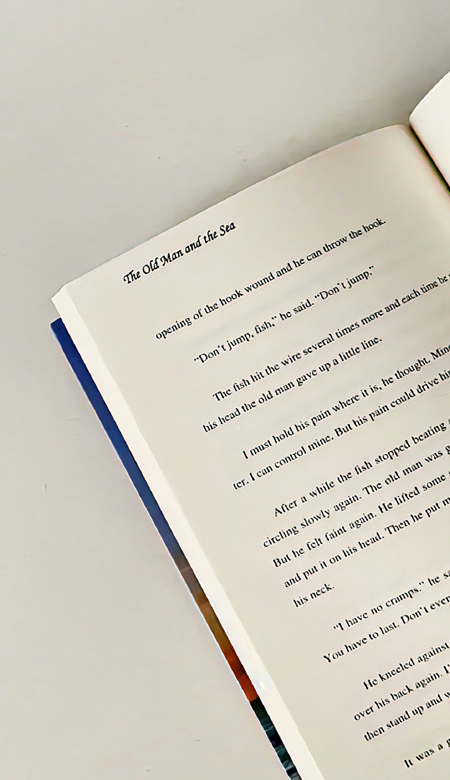 The Old Man and the Sea
opening of the hook wound and he can throw the hook.
“Don’t jump, fish,” he said. “Don’t jump,”
The fish hit the wire several times more and each time he
his head the old man gave up a little line.
I must hold his pain where it is, he thought.
ter. I can control mine. But his pain could drive
After a while the fish stopped beating
circling slowly again. The old man was
But he felt faint again. He lifted some
and put it on his head. Then he put
his neck.
“I have no cramps.” he
You have to last. Don’t
He kneeled against
over his back again.
then stand up and
It was a